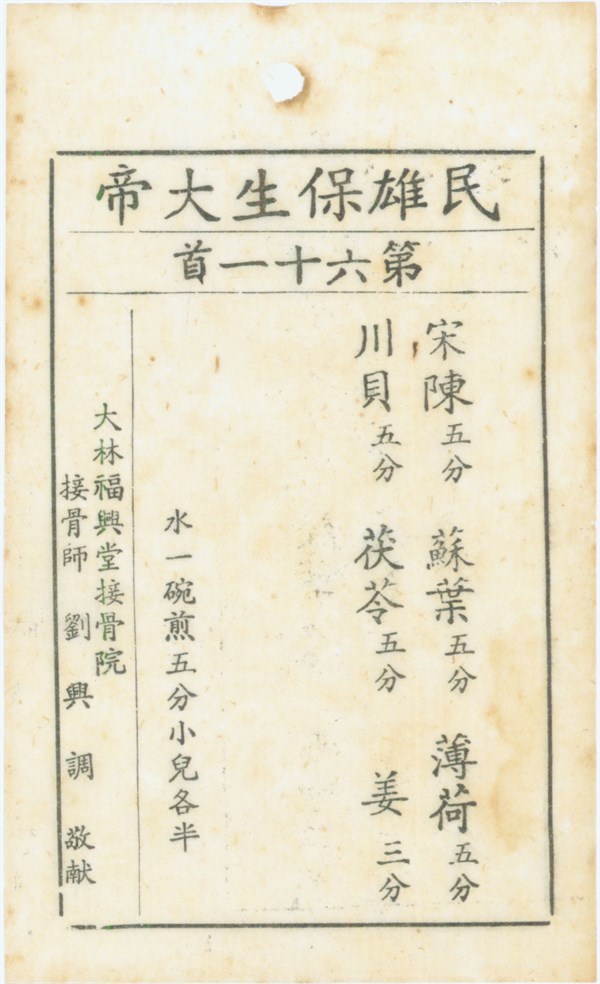 民雄保生大帝
第六十一首
宋陳五分 蘇葉五分 薄荷五分
川貝五分 茯苓五分 姜三分
水一碗煎五分小兒各半
大林福興堂接骨院
接骨師 劉興調 敬献